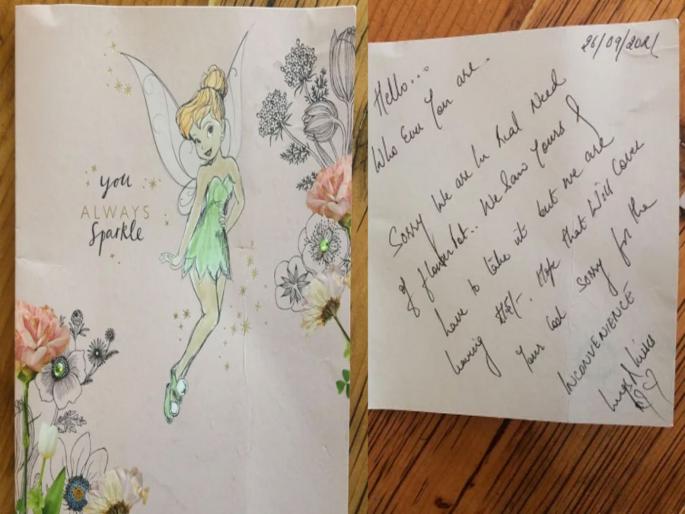 you
ALWAYS
Sparkle
26/09/2021
Hello...
Who Ever You are.
Sorry We are In Real Need
of ... We Saw Yours &
have to take it but we are
leaving Hope that Will Cover
Your Cost Sorry for the
INCONVENIENCE
Hugs & Kisses